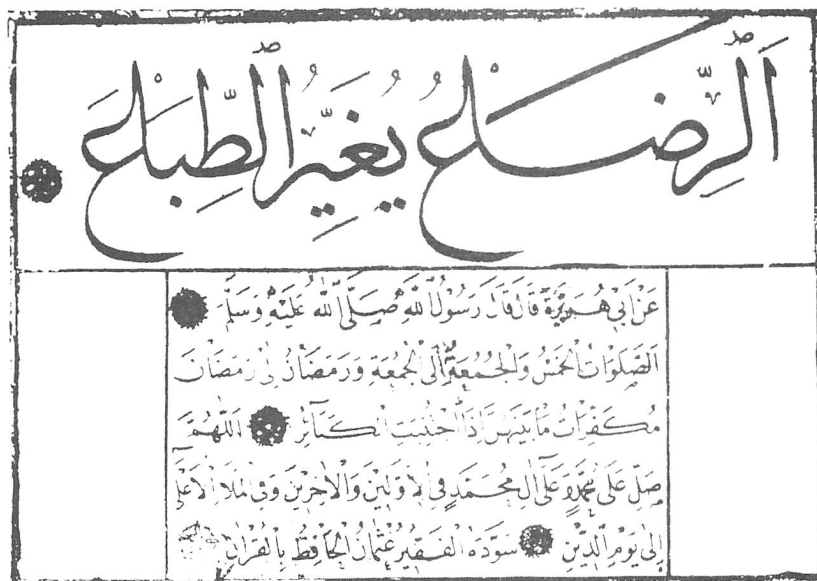 اَلرِّضَاعُ يُغَيِّرُ الطِّبَاعَ
عَنْ اَبِي هُرَيْرَةَ قَالَ قَالَ رَسُولُ اللّٰهِ صَلَّى اللّٰهُ عَلَيْهِ وَسَلَّمَ
اَلصَّلَوَاتُ الْخَمْسُ وَالْجُمُعَةُ اِلَى الْجُمُعَةِ وَرَمَضَانُ اِلٰى رَمَضَانَ
مُكَفِّرَاتٌ مَا بَيْنَهُنَّ اِذَا اجْتُنِبَتِ الْكَبَآئِرُ اَللّٰهُمَّ
صَلِّ عَلٰى مُحَمَّدٍ وَعَلٰٓى اٰلِ مُحَمَّدٍ فِي الْاَوَّلِينَ وَالْاٰخِرِينَ وَفِي الْمَلَاِ الْاَعْلٰٓى
اِلٰى يَوْمِ الدِّينِ سَوَّدَهُ الْفَقِيرُ عُثْمَانُ الْحَافِظُ بِالْقُرْاٰنِ